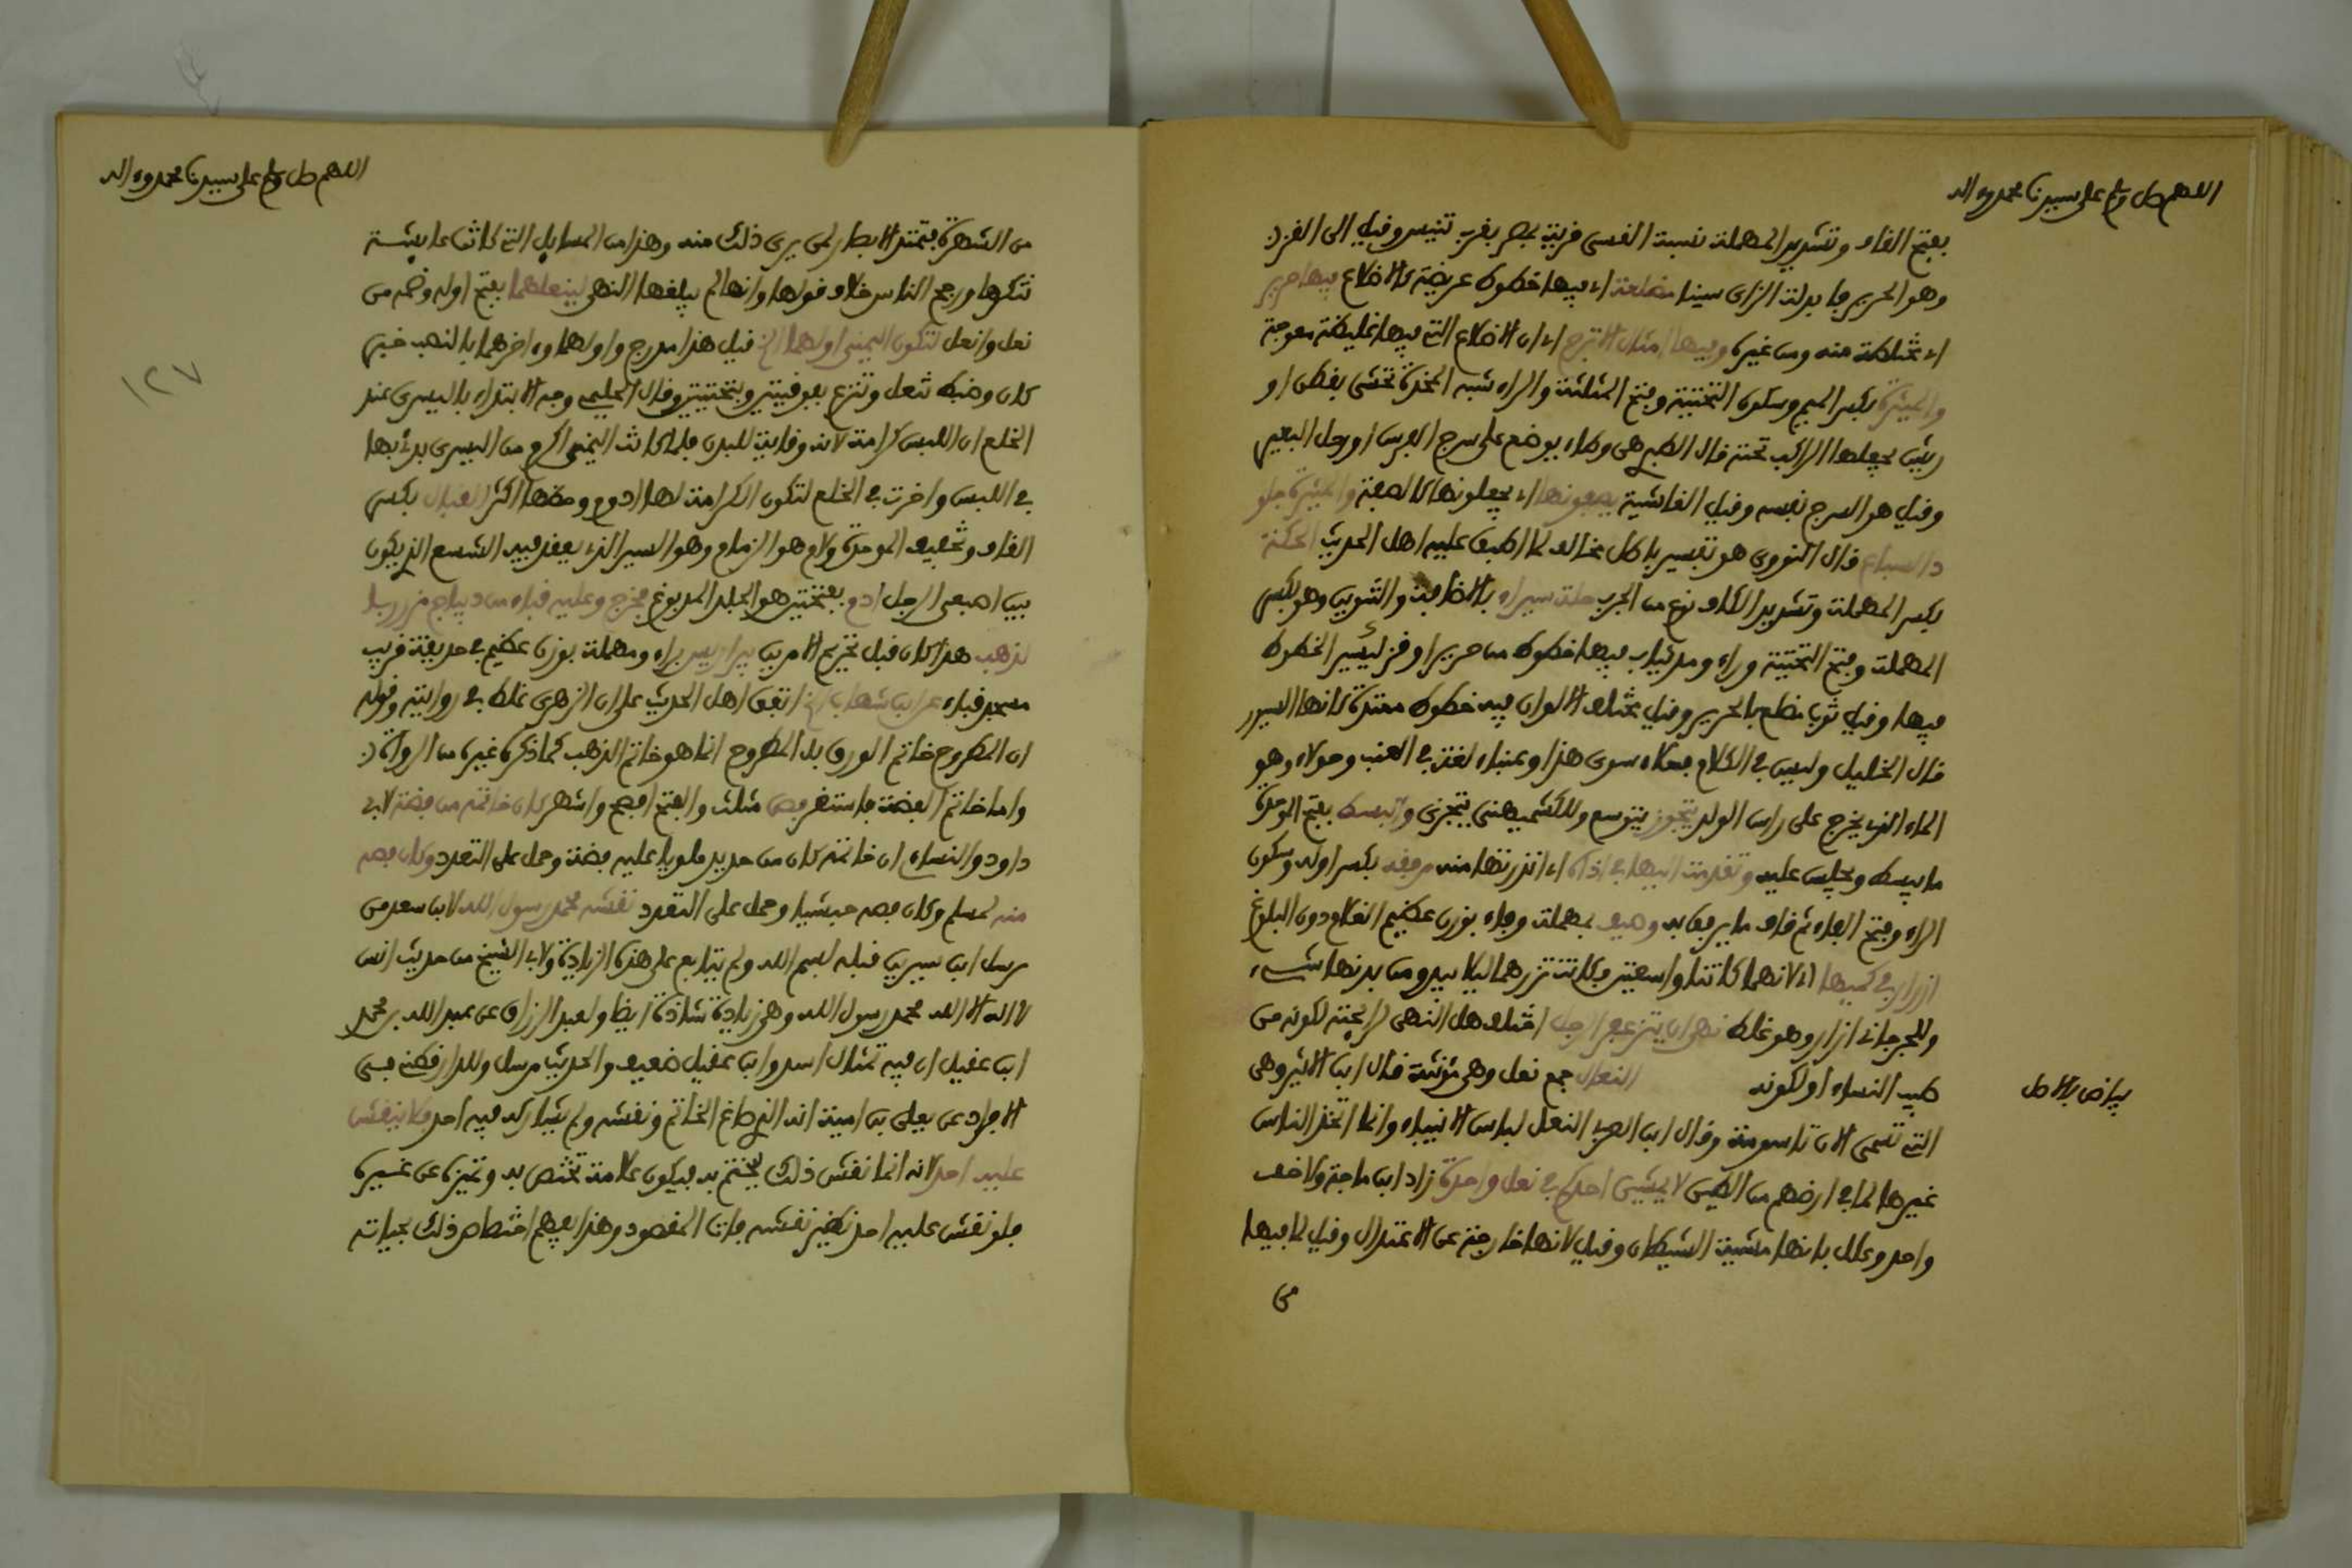 اللهم صل وسلم على سيدنا محمد وءاله
بفتح القاف وتشديد المهملة نسبة الفسى قرية بمصر بقرب تنيس وقيل الى القز
وهو الحرير فابدلت الزاى سينا مضلعة اي فيها خطوط عريضة كالاضلاع فيها حرير
اي مختلطة منه ومن غيره وفيها امثال الاترج اي ان الاضلاع التي فيها غليظة معوجة
والميثرة بكسر الميم وسكون التحتية وفتح المثلثة والراء شبه المخدة تحشى بقطن او
ريش يجعلها الراكب تحته قال الطبري هي وطاء يوضع على سرج الفرس او رحل البعير
وقيل هو السرج نفسه وقيل الغاشية يصفونها اي يجعلونها كالصفة والميثرة جلو
د السباع قال النووي هو تفسير باطل مخالف لما اطبق عليه اهل الحديث الحكة
بكسر المهملة وتشديد الكاف نوع من الجرب حلة سيراء بالاضافة والتنوين وهو بكسر
المهملة وفتح التحتية وراء ومد ثياب فيها خطوط من حرير او قز ليسير الخطوط
فيها وقيل ثوب مضلع بالحرير وقيل مختلف الالوان فيه خطوط ممتدة كانها السيور
قال الخليل وليس في الكلام فعلاء سوى هذا وعنباء لغة في العنب وحولاء وهو
الماء الذي يخرج على راس الولد يتجوز يتوسع وللكشميهني يتجزى والبسط بفتح الموحدة
ما يبسط ويجلس عليه وتقدمت اليها في اذاه اي انذرتها منه مرفقة بكسر اوله وسكون
الراء وفتح الفاء ثم قاف ما يرتفق به وصيف بمهملة وفاء بوزن عظيم الغلام دون البلوغ
ازرار في كميها اي لانهما كانتا واسعتين فكانت تزرهما ليلا يبدو من بدنها شيء
وللجرجاني ازار وهو غلط نهى ان يتزعفر الرجل اختلف هل النهي لرايحته لكونه من
طيب النساء او لكونه النعال جمع نعل وهي مؤنثة قال ابن الاثير وهي
بياض بالاصل
التي تسمى الان تاسومة وقال ابن العربي النعل لباس الانبياء وانما اتخذ الناس
غيرها لما في ارضهم من الطين لا يمشين احدكم في نعل واحدة زاد ابن ماجة ولا خف
واحد وعلل بانها مشية الشيطان وقيل لانها خارجة عن الاعتدال وقيل لما فيها
من
اللهم صل وسلم على سيدنا محمد وءاله
من الشهرة فتمتد الابصار لمن يرى ذلك منه وهذا من المسايل التي كانت عايشة
تنكرها ورجح الناس خلاف قولها وانها لم يبلغها النهي لينعلهما بفتح اوله وضمه من
نعل وانعل لتكون اليمنى اولهما الخ قيل هذا مدرج واولهما وءاخرهما بالنصب خبر
كان وضبط تنعل وتنزع بفوقيتين وبتحتيتين وقال الحليمي وجه الابتداء باليسرى عند
الخلع ان اللبس كرامة لانه وقاية للبدن فلما كانت اليمنى اكرم من اليسرى بدئ بها
في اللبس واخرت في الخلع لتكون الكرامة لها ادوم وحظها اكثر القبال بكسر
القاف وتخفيف الموحدة ولام هو الزمام وهو السير الذي يعقد فيه الشسع الذي يكون
بين اصبعي الرجل ادم بفتحتين هو الجلد المدبوغ فخرج وعليه قباء من ديباج مزرربا
لذهب هذا كان قبل تحريم الامرين بيراريس براء ومهملة بوزن عظيم في حديقة قريب
مسجد قباء عن ابن شهاب الخ اتفق اهل الحديث على ان الزهري غلط في روايته وقوله
ان المطروح خاتم الورق بل المطروح انما هو خاتم الذهب كما ذكره غيره من الرواة
واما خاتم الفضة فاستقر فص مثلث والفتح افصح واشهر كان خاتمه من فضة لابي
داود والنساءي ان خاتمه كان من حديد ملويا عليه بفضة وحمل على التعدد وكان فصه
منه لمسلم وكان فصه حبشيا وحمل على التعدد نقشه محمد رسول الله لابن سعد من
مرسل ابن سيرين قبله لبسم الله ولم يتابع على هذه الزيادة ولابي الشيخ من حديث انس
لا اله الا الله محمد رسول الله وهي زيادة شاذة ايضا ولعبد الرزاق عن عبد الله بن محمد
ابن عقيل ان فيه تمثال اسد وابن عقيل ضعيف والحديث مرسل وللدارقطني في
الافراد عن يعلى بن امية انه الذي صاغ الخاتم ونقشه ولم يشاركه فيه احد فلا ينقش
عليه احد لانه انما نقش ذلك ليختم به فيكون علامة تختص به وتميزه عن غيره
فلو نقش عليه احد نظير نقشه فات المقصود وهذا يفهم اختصاص ذلك بحياته
١٢٧